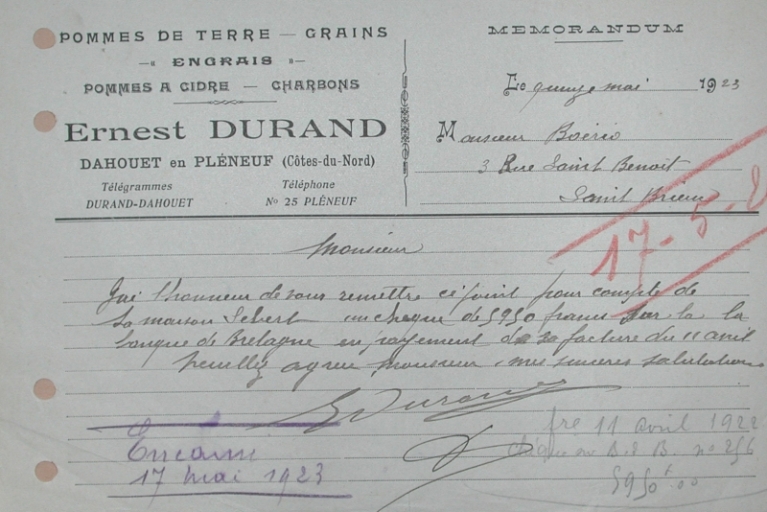 POMMES DE TERRE — GRAINS
ENGRAIS
POMMES A CIDRE — CHARBONS
Ernest DURAND
DAHOUET en PLÉNEUF (Côtes-du-Nord)
Télégrammes
DURAND-DAHOUET
Téléphone
No 25 PLÉNEUF
MEMORANDUM
Le quinze mai 1923
Monsieur Boério
3 Rue Saint Benoit
Saint Brieuc
17-5-2
Monsieur
J'ai l'honneur de vous remettre ci joint pour compte de
la maison Sebert un cheque de 5950 francs sur la la
banque de Bretagne en payement de sa facture du 11 avril
Veuillez agreer monsieur mes sinceres salutations
E Durand
Encaissé
17 mai 1923
fre 11 avril 1922
chèque sur B. d B. no 256
5950f.00